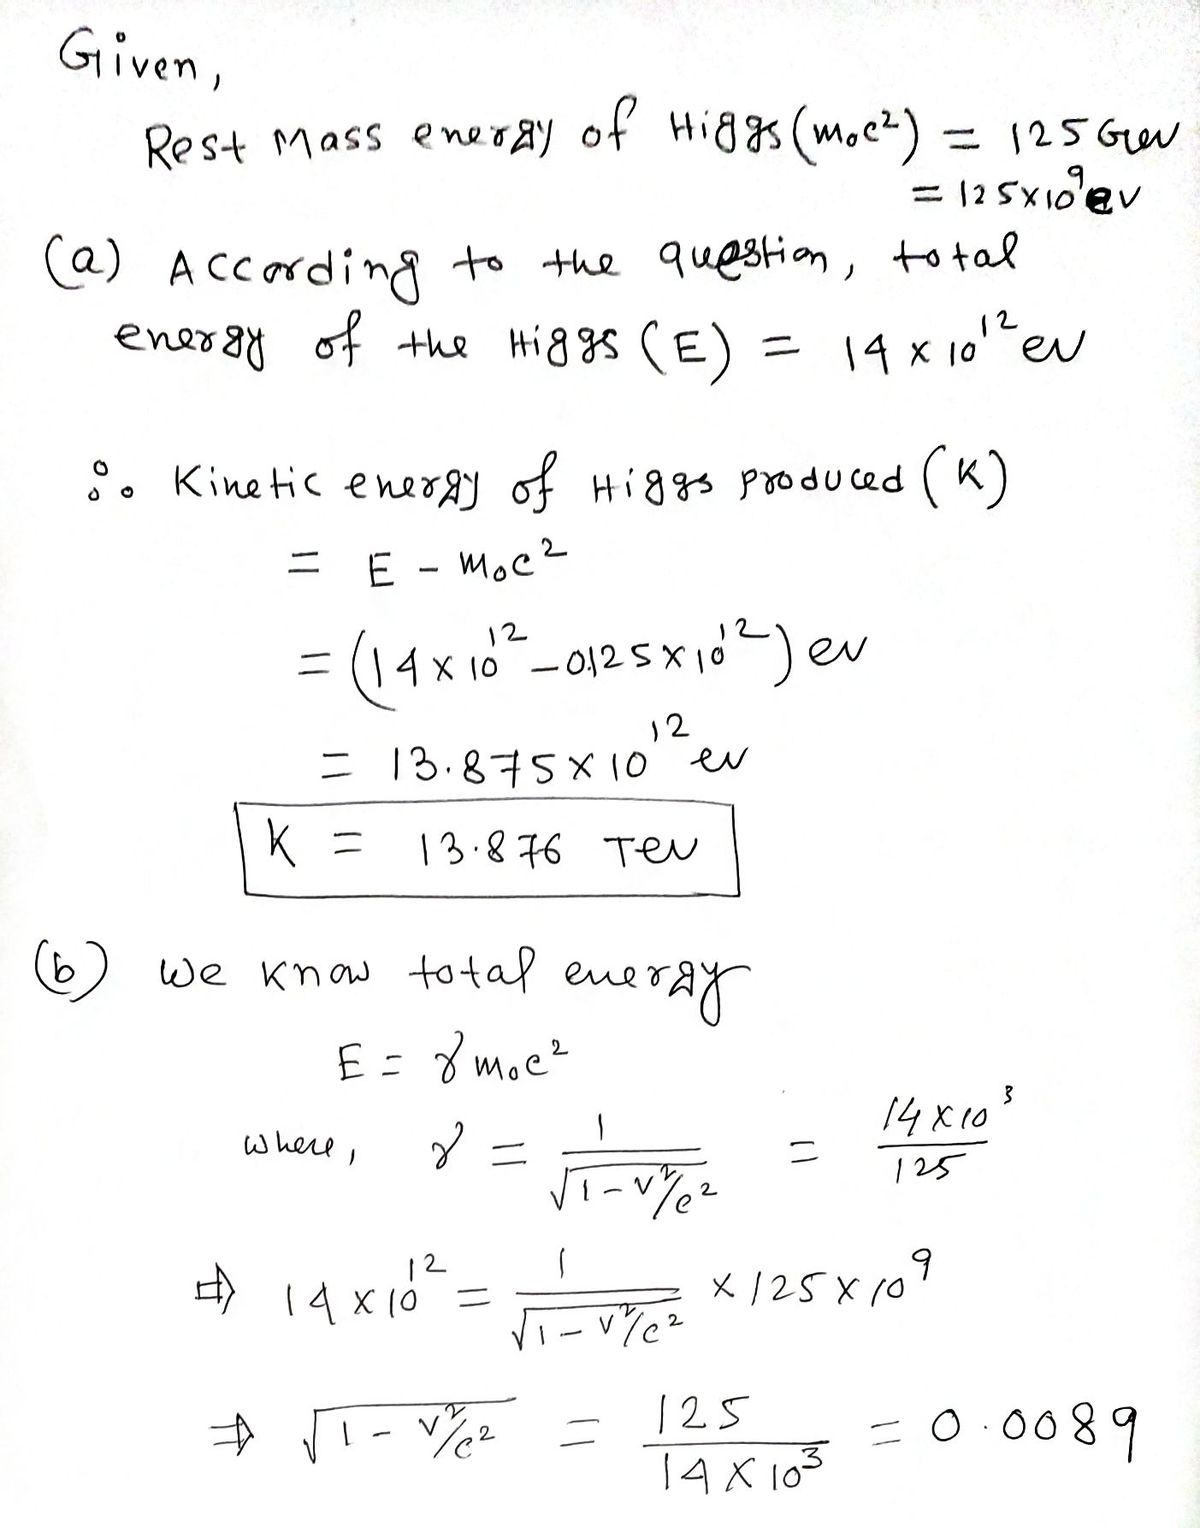 Given,
Rest Mass energy of Higgs (m₀c²) = 125 Gev
= 125×10⁹ ev
(a) According to the question, total
energy of the Higgs (E) = 14 × 10¹² ev
∴ Kinetic energy of Higgs produced (K)
= E - m₀c²
= (14 × 10¹² - 0.125 × 10¹²) ev
= 13.875 × 10¹² ev
K = 13.876 Tev
(b) We know total energy
E = γ m₀c²
where, γ = 1/√(1 - v²/c²) = 14 × 10³/125
⇒ 14 × 10¹² = 1/√(1 - v²/c²) × 125 × 10⁹
⇒ √(1 - v²/c²) = 125/(14 × 10³) = 0.0089